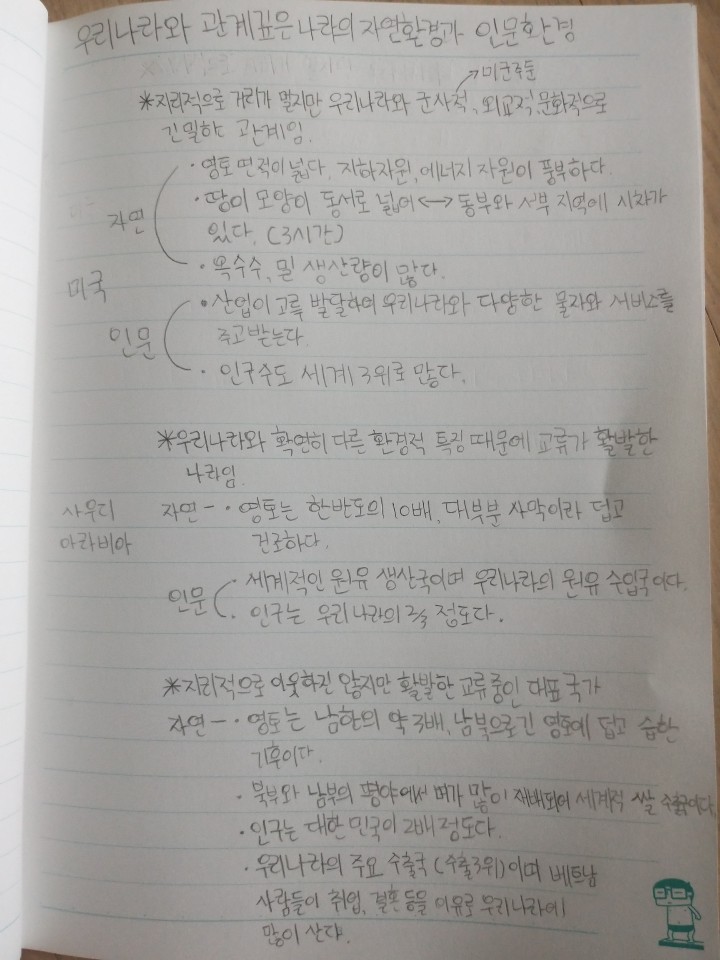 우리나라와 관계깊은 나라의 자연환경과 인문환경
미군주둔
*지리적으로 거리가 멀지만 우리나라와 군사적, 외교적, 문화적으로
긴밀한 관계임.
· 영토 면적이 넓다. 지하자원, 에너지 자원이 풍부하다.
자연
· 땅이 모양이 동서로 넓어 ↔ 동부와 서부 지역에 시차가
있다. (3시간)
· 옥수수, 밀 생산량이 많다.
미국
인문
· 산업이 고루 발달하여 우리나라와 다양한 물자와 서비스를
주고받는다.
· 인구수도 세계 3위로 많다.
*우리나라와 확연히 다른 환경적 특징 때문에 교류가 활발한
나라임.
사우디
아라비아
자연 - · 영토는 한반도의 10배, 대부분 사막이라 덥고
건조하다.
인문
· 세계적인 원유 생산국이며 우리나라의 원유 수입국이다.
· 인구는 우리나라의 2/3 정도다.
*지리적으로 이웃하진 않지만 활발한 교류중인 대표 국가
자연 - · 영토는 남한의 약 3배, 남북으로 긴 영토에 덥고 습한
기후이다.
· 북부와 남부의 평야에서 벼가 많이 재배되어 세계적 쌀 수출국이다.
· 인구는 대한민국이 2배 정도다.
· 우리나라의 주요 수출국 (수출3위)이며 베트남
사람들이 취업, 결혼 등을 이유로 우리나라에
많이 산다.